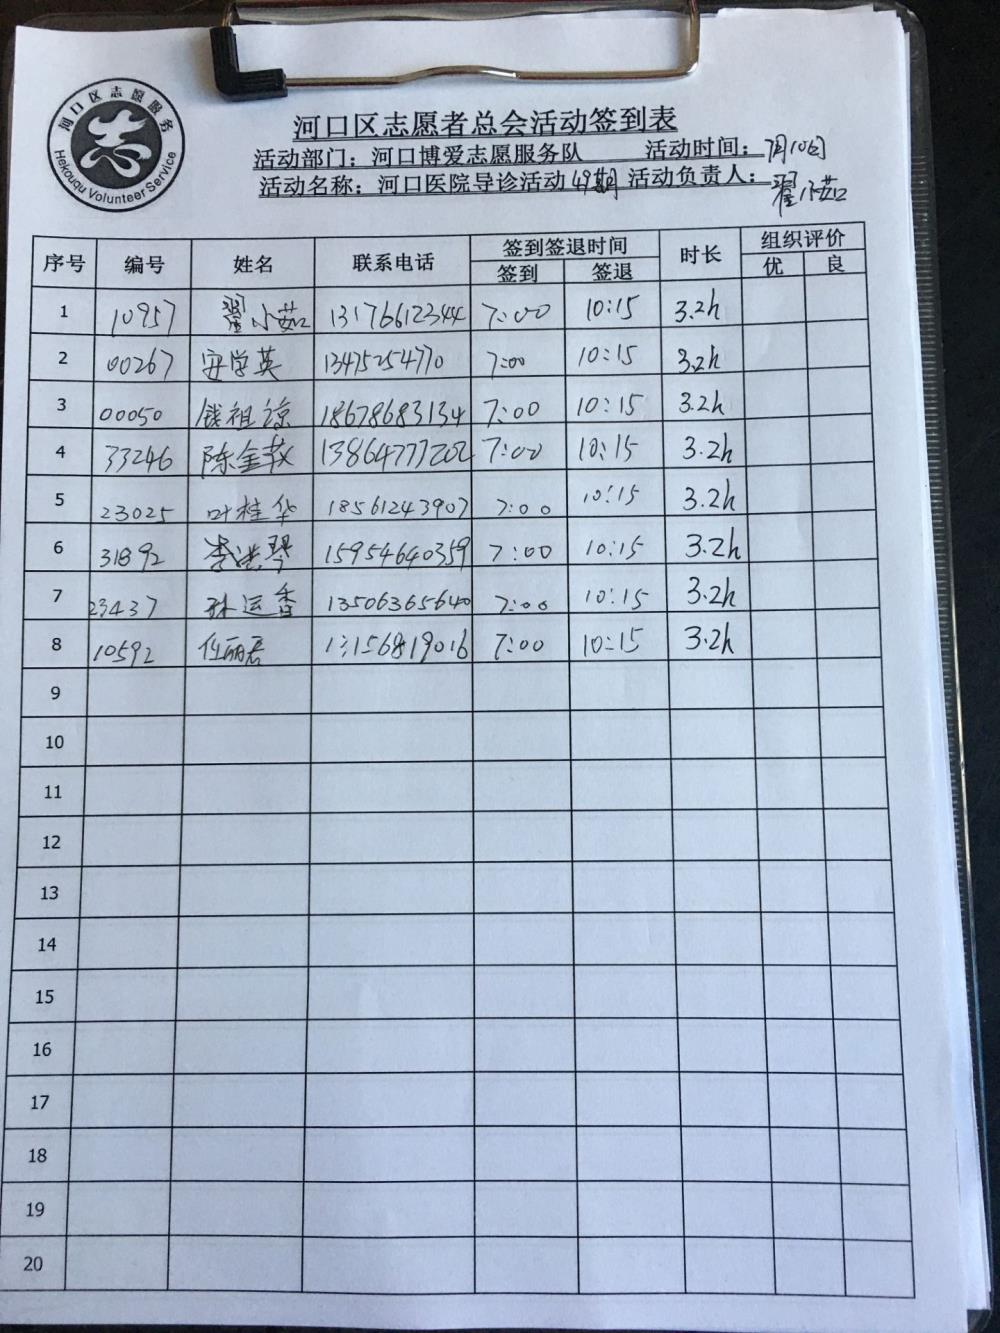 河口区志愿服务
Hekouqu Volunteer Service
河口区志愿者总会活动签到表
活动部门：河口博爱志愿服务队 活动时间：7月10日
活动名称：河口医院导诊活动49期 活动负责人：翟小茹
序号 编号 姓名 联系电话 签到签退时间 时长 组织评价
签到 签退 优 良
1 10957 翟小茹 13176612344 7:00 10:15 3.2h
2 00267 安学英 13475254770 7:00 10:15 3.2h
3 00050 钱祖谅 18678683134 7:00 10:15 3.2h
4 33246 陈金教 13864777202 7:00 10:15 3.2h
5 23025 叶桂华 18561243907 7:00 10:15 3.2h
6 31892 李洪琴 15954640359 7:00 10:15 3.2h
7 23437 孙运香 13506365640 7:00 10:15 3.2h
8 10592 任丽君 13156819016 7:00 10:15 3.2h
9
10
11
12
13
14
15
16
17
18
19
20